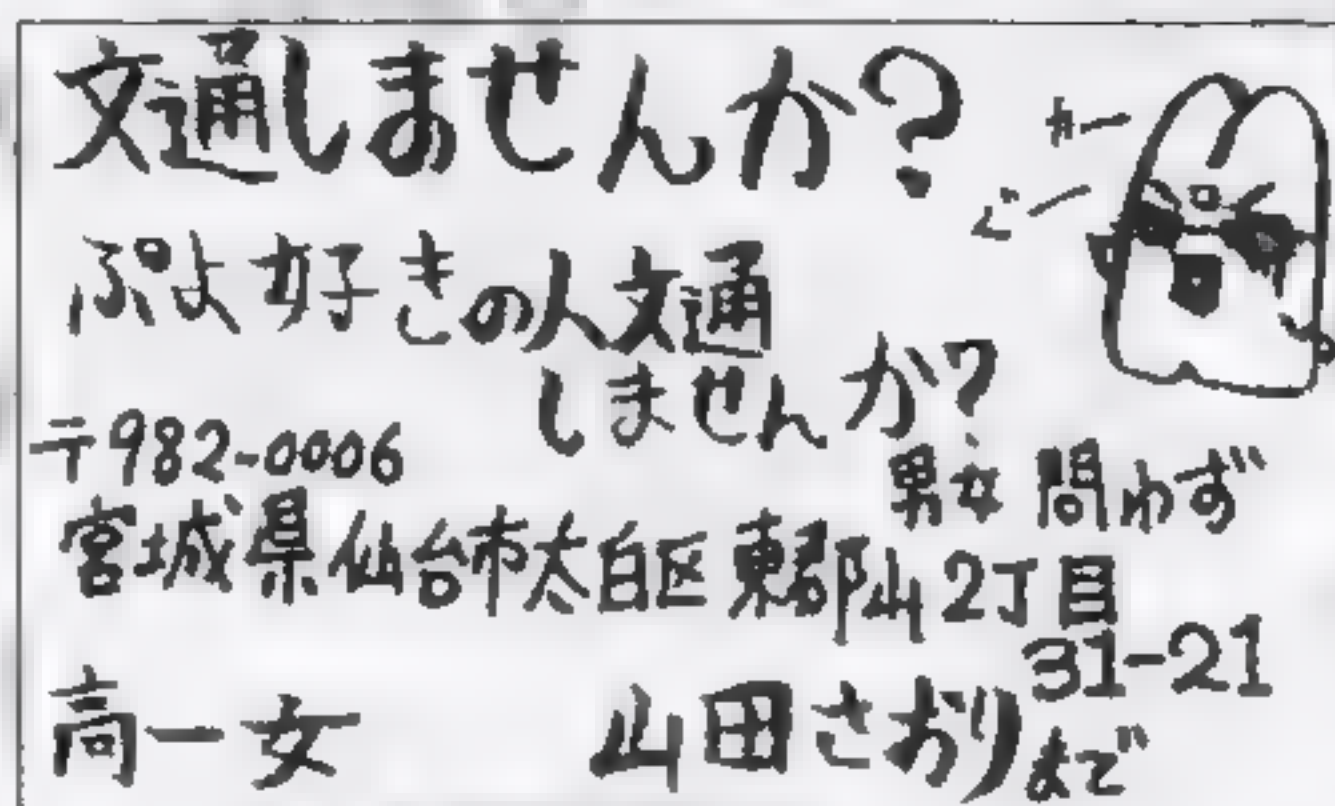 文通しませんか?
カー
ぐー
ぷよ好きの人文通
しませんか?
男女問わず
〒982-0006
宮城県仙台市太白区東郡山2丁目
31-21
高一女 山田さおりまで